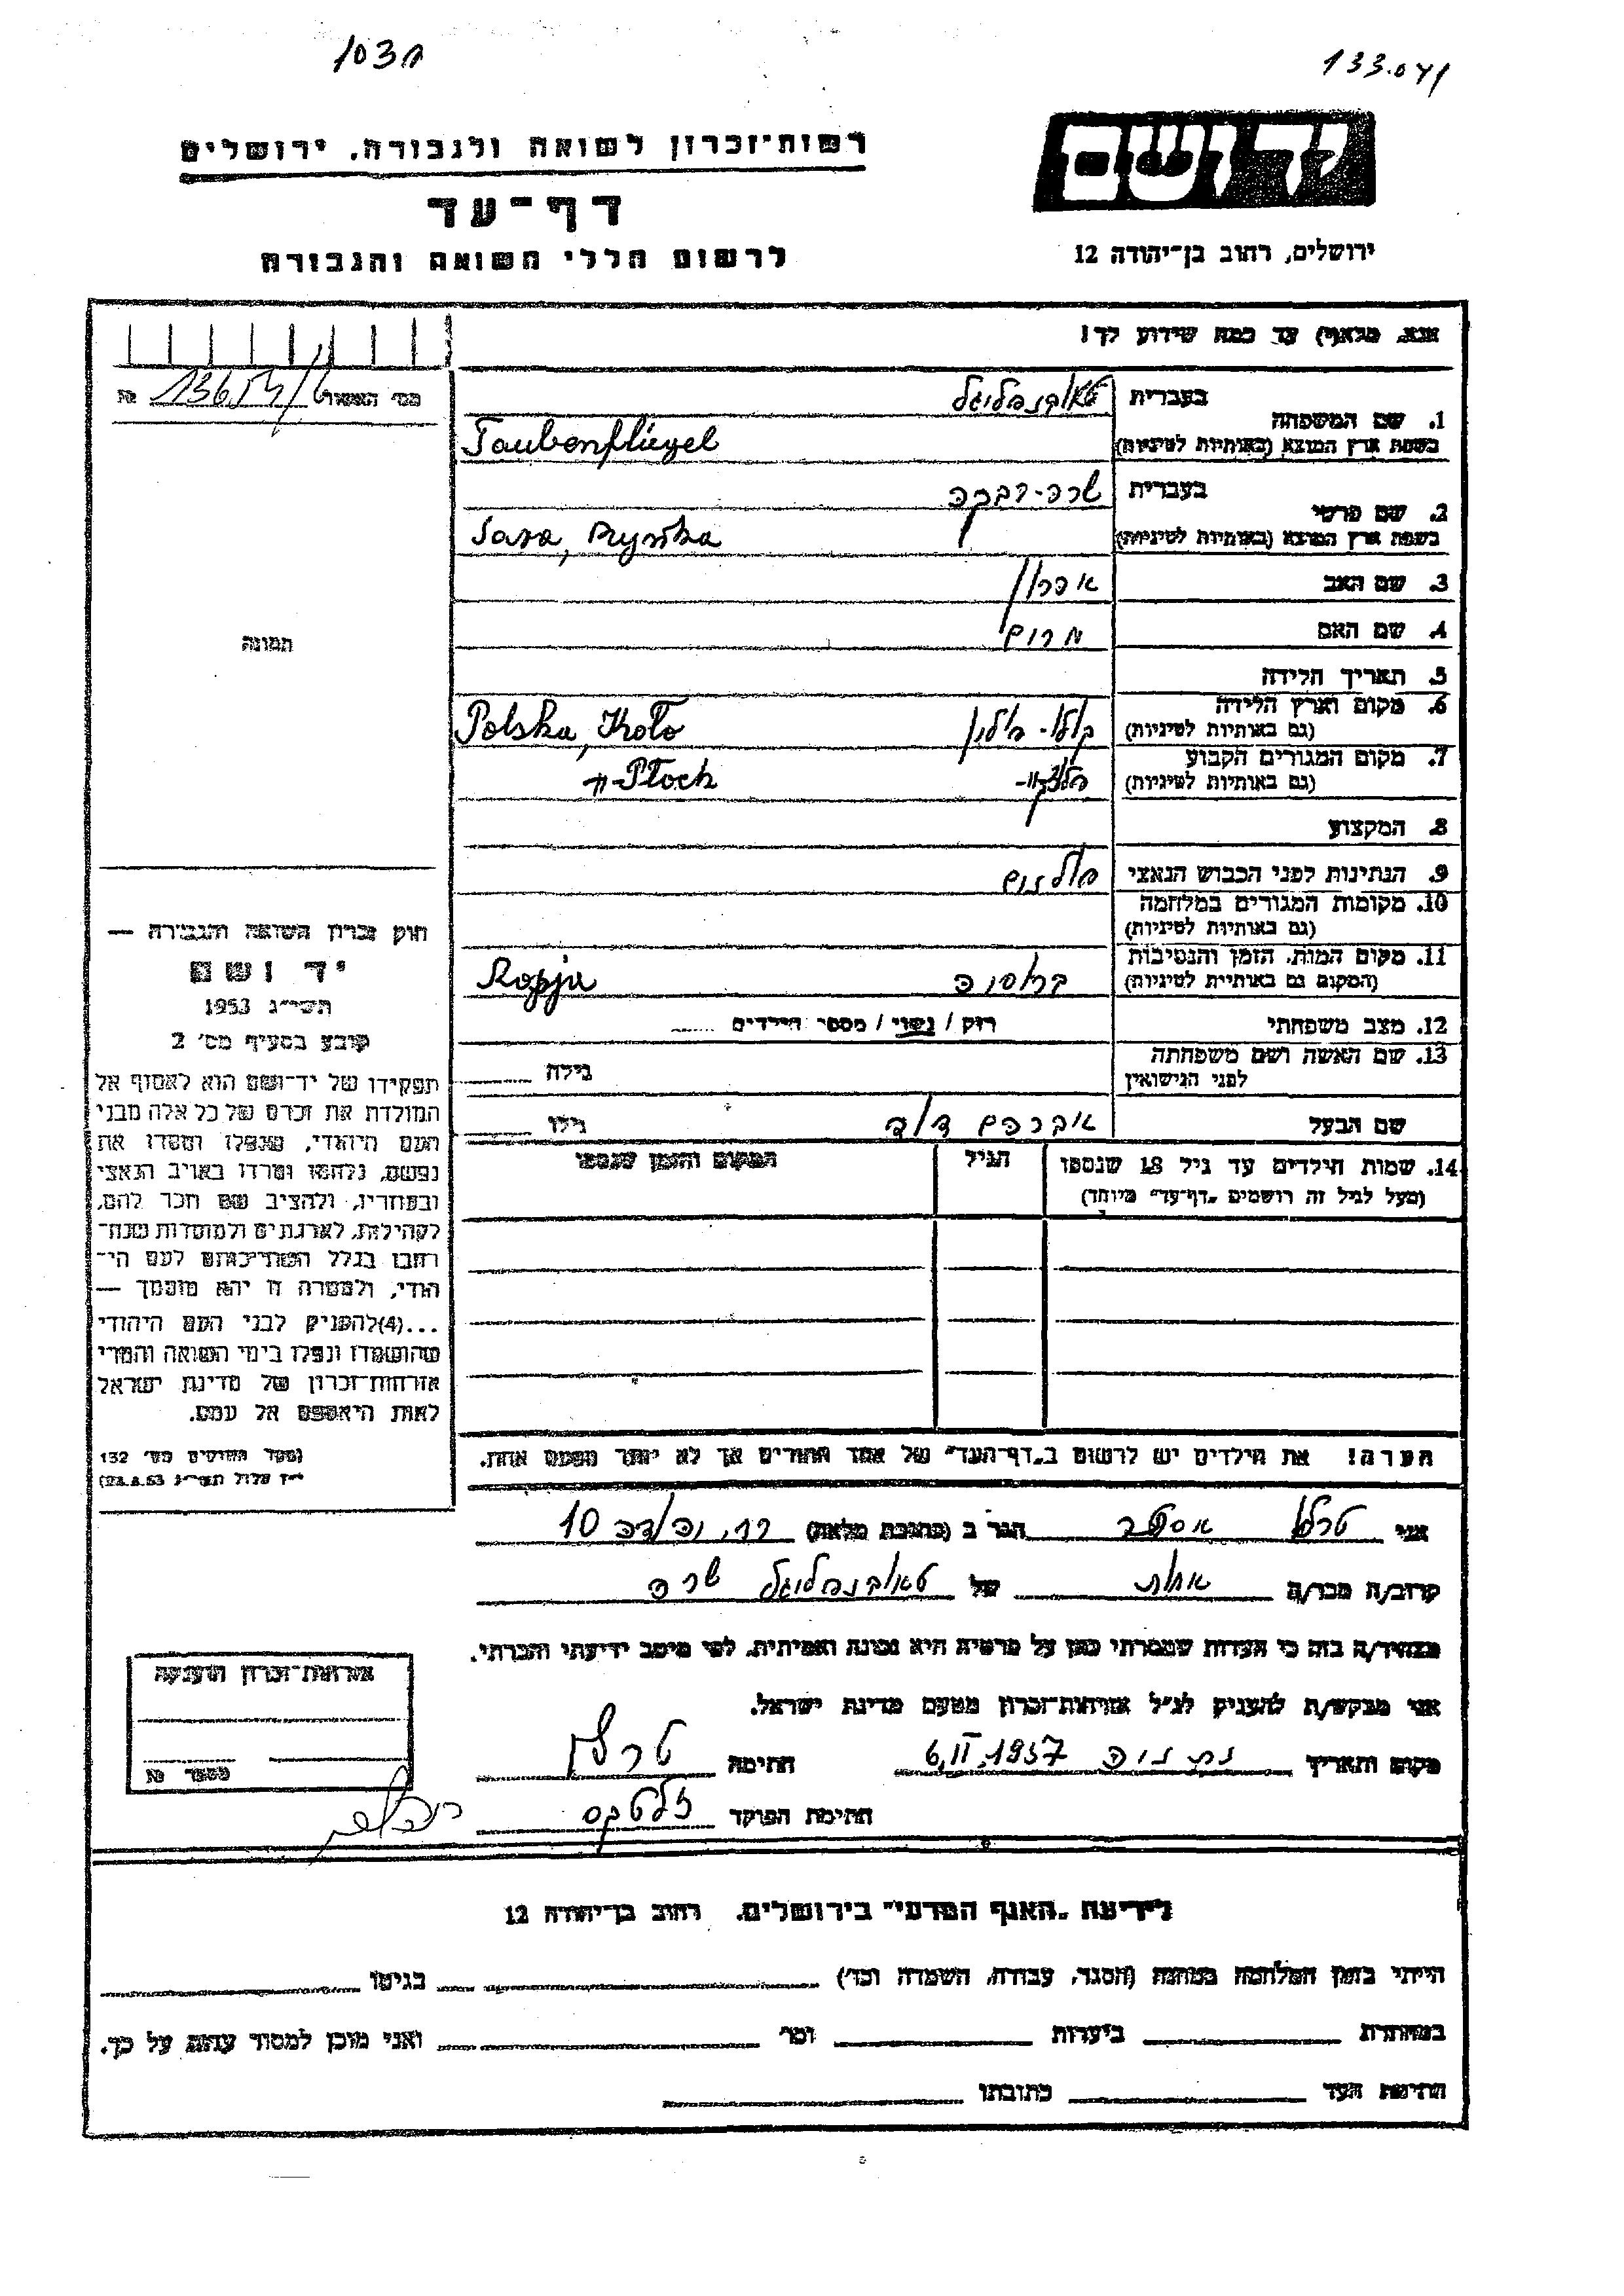 103א
133.041
רשות־זכרון לשואה ולגבורה, ירושלים
יד ושם
דף־עד
לרשום חללי השואה והגבורה
ירושלים, רחוב בן־יהודה 12
אנא, מלא(י) עד כמה שידוע לך!
מס׳ האשור
1. שם המשפחה
בעברית טאובנפליגל
בשפת ארץ המוצא (באותיות לטיניות) Taubenfliegel
2. שם פרטי
בעברית שרה-רבקה
בשפת ארץ המוצא (באותיות לטיניות) Sara,
3. שם האב אהרון
4. שם האם מרים
תמונה
5. תאריך הלידה
6. מקום וארץ הלידה
(גם באותיות לטיניות) קולו - פולין Polska, Koło
7. מקום המגורים הקבוע
(גם באותיות לטיניות) פלוצק -"- -"- Płock
8. המקצוע
9. הנתינות לפני הכבוש הנאצי פולנית
10. מקומות המגורים במלחמה
(גם באותיות לטיניות)
11. מקום המות, הזמן והנסיבות
(המקום גם באותיות לטיניות) ברוסיה Rosja
12. מצב משפחתי רווק / נשוי / מספר הילדים
13. שם האשה ושם משפחתה
לפני הנישואין גילה
שם הבעל אברהם דוד גילו
14. שמות הילדים עד גיל 18 שנספו הגיל המקום והזמן שנספו
(מעל לגיל זה רושמים „דף־עד״ מיוחד)
חוק זכרון השואה והגבורה —
יד ושם
תשי״ג 1953
קובע בסעיף מס׳ 2
תפקידו של יד־ושם הוא לאסוף אל
המולדת את זכרם של כל אלה מבני
העם היהודי, שנפלו ומסרו את
נפשם, נלחמו ומרדו באויב הנאצי
ובעוזריו, ולהציב שם וזכר להם,
לקהילות, לארגונים ולמוסדות שנח־
רבו בגלל השתייכותם לעם הי־
הודי, ולמטרה זו יהא מוסמך —
...(4)להעניק לבני העם היהודי
שהושמדו ונפלו בימי השואה והמרי
אזרחות־זכרון של מדינת ישראל
לאות היאספם אל עמם.
(ספר החוקים מס׳ 132
י״ז אלול תשי״ג 28.8.53)
הערה! את הילדים יש לרשום ב„דף־העד״ של אחד ההורים אך לא יותר מפעם אחת.
אני טרלו אסתר הגר ב (כתובת מלאה) רח׳ יהודה 10
קרוב/ה מכר/ה אחות של טאובנפליגל שרה
מצהיר/ה בזה כי העדות שמסרתי כאן על פרטיה היא נכונה ואמיתית, לפי מיטב ידיעתי והכרתי.
אני מבקש/ת להעניק לנ״ל אזרחות־זכרון מטעם מדינת ישראל.
מקום ותאריך נתניה 6.II.1957 חתימה
חתימת הפוקד
אזרחות־זכרון הוענקה
מספר №
לידיעת „האגף המדעי״ בירושלים, רחוב בן־יהודה 12
הייתי בזמן המלחמה במחנה (הסגר, עבודה, השמדה וכד׳) בגיטו
במחתרת ביערות וכו׳ ואני מוכן למסור עדות על כך.
חתימת העד כתובתו